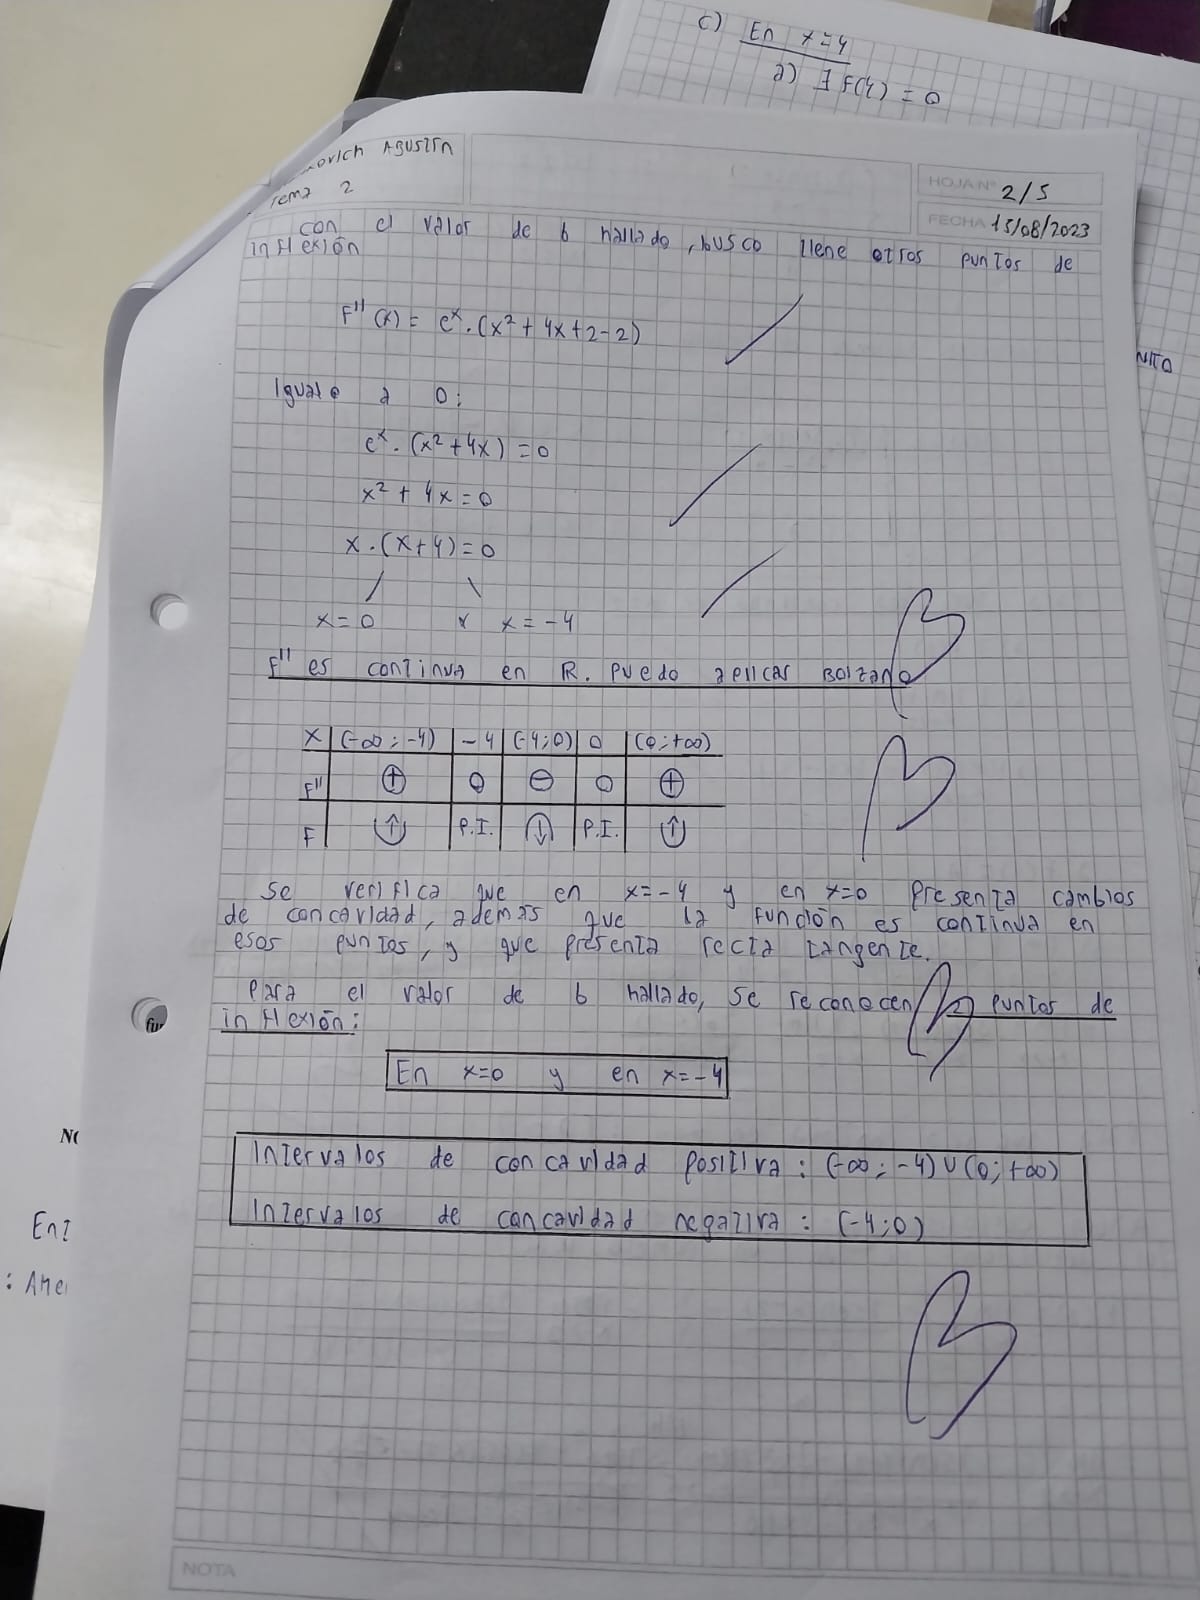 c) En x=4
a) ∃ F(4) = 0
ovich AGUSTÍN
Tema 2
HOJA Nº 2/5
FECHA 15/08/2023
con el valor de b hallado, busco tiene otros puntos de
inflexión
F''(x) = e^x.(x²+4x+2-2)
Igualo a 0:
e^x.(x²+4x)=0
x²+4x=0
x.(x+4)=0
x=0 x=-4
F'' es continua en R. Puedo aplicar Bolzano
x | (-∞;-4) | -4 | (-4;0) | 0 | (0;+∞)
F'' | + | 0 | - | 0 | +
F | ↑ | P.I. | ↓ | P.I. | ↑
Se verifica que en x=-4 y en x=0 presenta cambios
de concavidad, además que la función es continua en
esos puntos, y que presenta recta tangente.
Para el valor de b hallado, se reconocen 2 puntos de
inflexión:
En x=0 y en x=-4
Intervalos de concavidad positiva: (-∞;-4)∪(0;+∞)
Intervalos de concavidad negativa: (-4;0)
NOTA